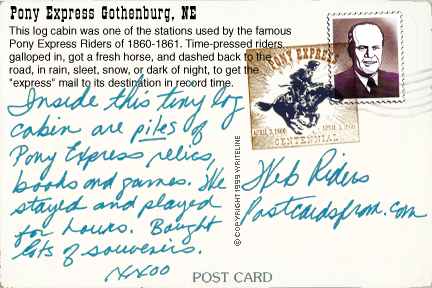 Pony Express Gothenburg, NE
This log cabin was one of the stations used by the famous
Pony Express Riders of 1860-1861. Time-pressed riders
galloped in, got a fresh horse, and dashed back to the
road, in rain, sleet, snow, or dark of night, to get the
"express" mail to its destination in record time.
Inside this tiny log
cabin are piles of
Pony Express relics,
books and games. We
stayed and played
for hours. Bought
lots of souvenirs.
XXOO
© COPYRIGHT 1999 WRITELINE
PONY EXPRESS
CENTENNIAL
Web Riders
Postcardsfrom.com
POST CARD